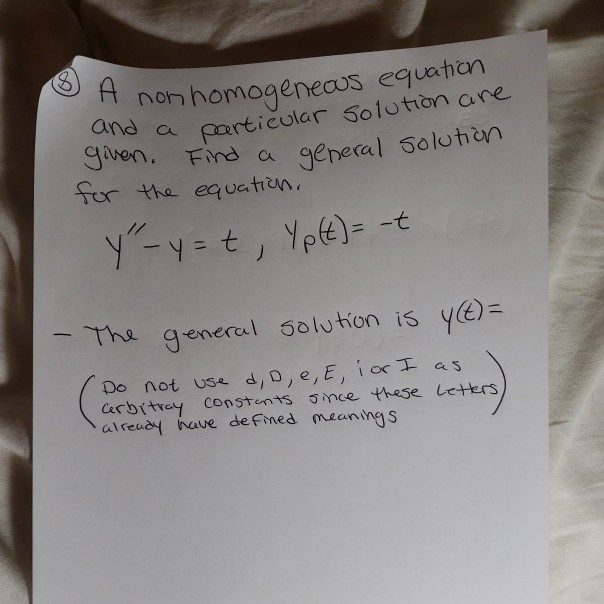 ⑧ A nonhomogeneous equation
and a particular solution are
given. Find a general solution
for the equation.
y'' - y = t, yₚ(t) = -t
- The general solution is y(t) =
(Do not use d, D, e, E, i or I as
arbitray constants since these letters
already have defined meanings)